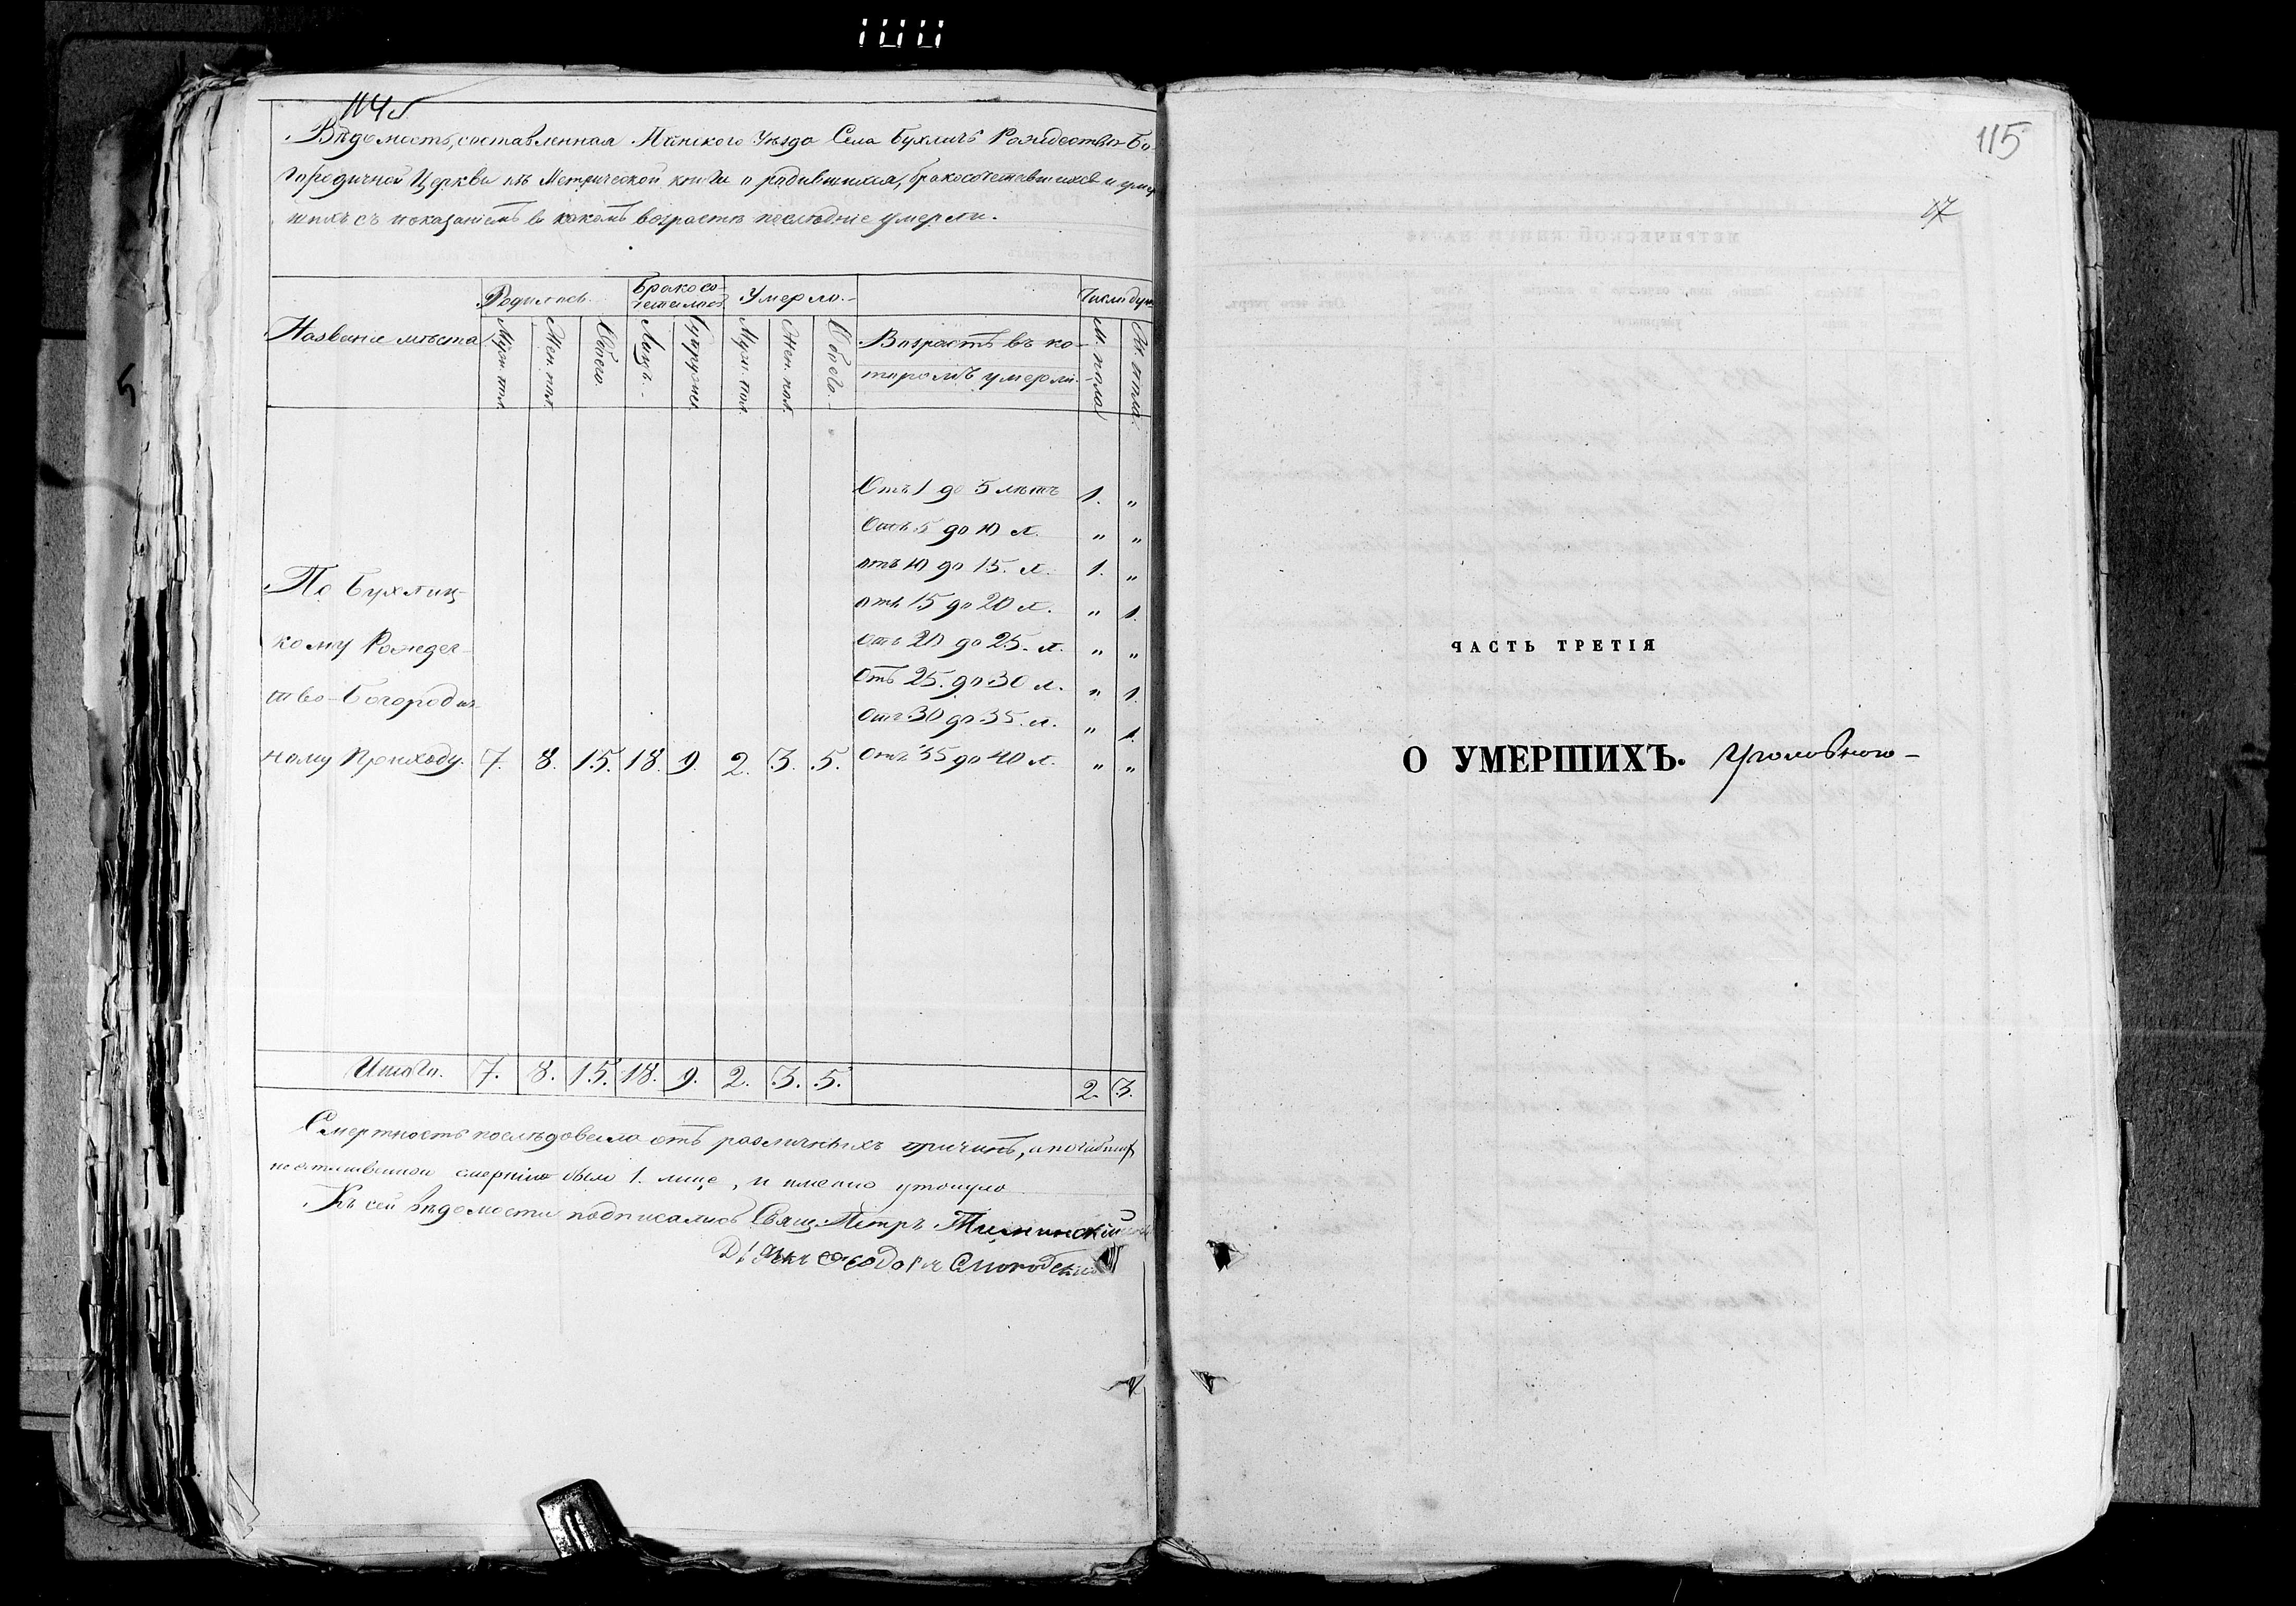 100
114 об
Вѣдомость, составленная Минского Уѣзда Села Бухличь Рождество Бо-
городичной Церкви къ Метрической книги о родившихся, бракосочетавшихся и умер
шихъ съ показаніемъ въ какомъ возрастѣ послѣдніе умерли.
Названіе мѣста Родилось. Бракосо-четалось Умерло. Число душъ
Муж. пол. Жен. пол. Обоего. Лицъ. Супруж. Муж. пол. Жен. пол. Обоего. Возрастъ въ ко- М. пола Ж. пола
торомъ умерли.
Отъ 1 до 5 лѣтъ 1. "
Отъ 5 до 10 л. " "
отъ 10 до 15. л. 1. "
По Бухлиц-
отъ 15 до 20 л. " 1.
кому Рождес-
Отъ 20 до 25. л. " "
Отъ 25. до 30 л. " 1.
тво-Богородич-
Отъ 30 до 35. л. " 1.
ному Приходу. 7. 8. 15. 18. 9. 2. 3. 5. Отъ 35 до 40 л. " "
Итого. 7. 8. 15. 18. 9. 2. 3. 5. 2. 3.
Смертность послѣдовала отъ различныхъ причинъ, а погибших
неестественной смертію было 1. лице, и именно утонуло
Къ сей вѣдомости подписались Свящ. Петръ
Дьякъ Ѳеодоръ
115
17
ЧАСТЬ ТРЕТІЯ
О УМЕРШИХЪ.